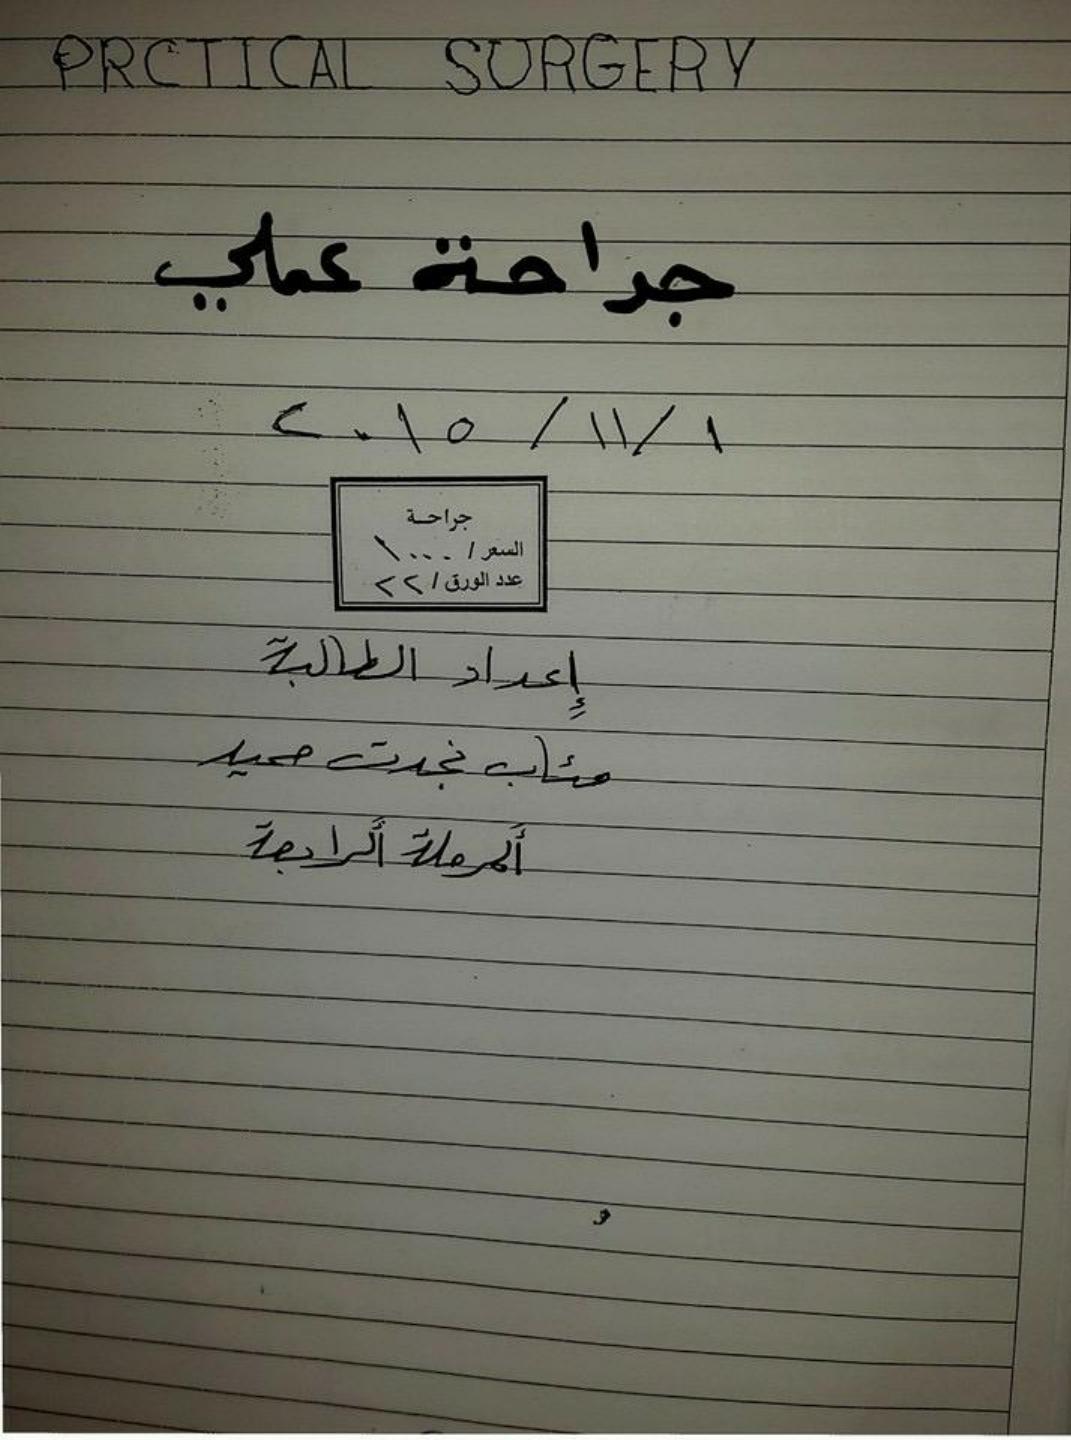 PRCTICAL SURGERY
جراحة عملي
١ /١١/ ٢٠١٥
جراحة
السعر / ١٠٠٠
عدد الورق / ٢٢
إعداد الطالبة
مئاب نجدت حميد
ألمرحلة ألرابعة